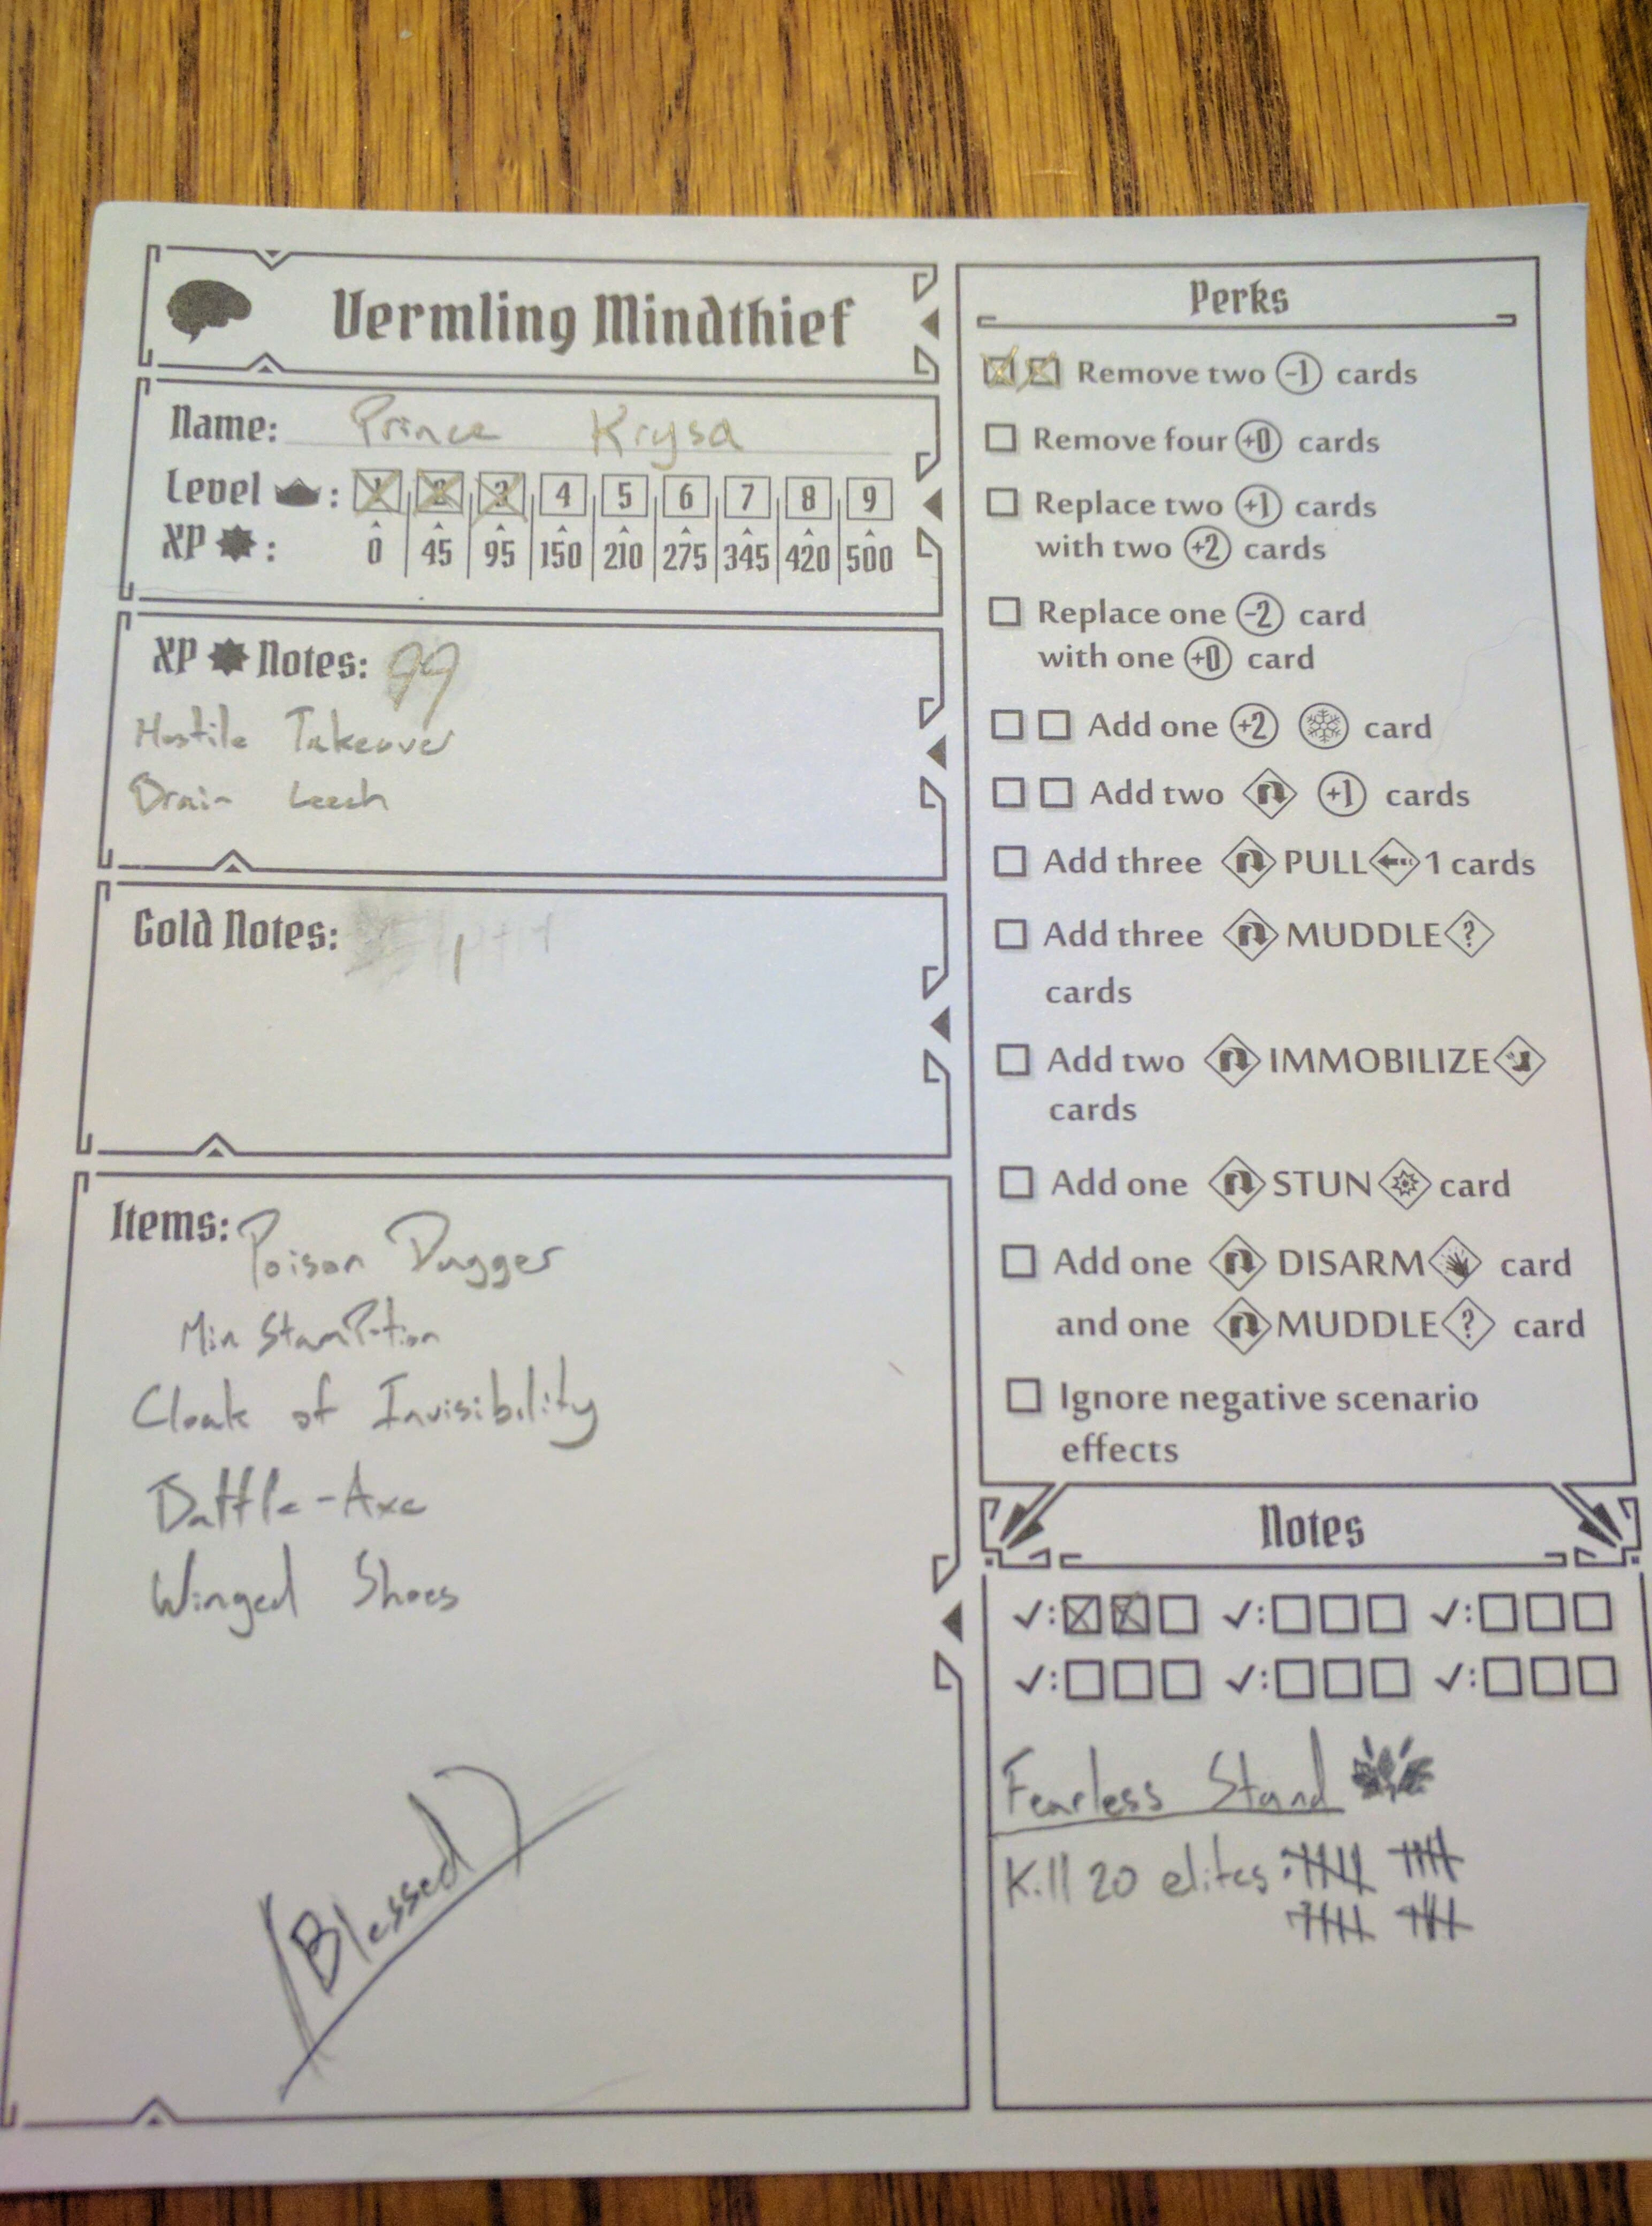 Vermling Mindthief
Name: Prince Krysa
Level : 1 2 3 4 5 6 7 8 9
XP : 0 45 95 150 210 275 345 420 500
XP Notes: 99
Hostile Takeover
Brain Leech
Gold Notes: 1
Items: Poison Dagger
Min Stam Potion
Cloak of Invisibility
Battle-Axe
Winged Shoes
Blessed
Perks
Remove two -1 cards
Remove four +0 cards
Replace two +1 cards
with two +2 cards
Replace one -2 card
with one +0 card
Add one +2 card
Add two +1 cards
Add three PULL 1 cards
Add three MUDDLE ?
cards
Add two IMMOBILIZE
cards
Add one STUN card
Add one DISARM card
and one MUDDLE ? card
Ignore negative scenario
effects
Notes
✓: ✓: ✓:
✓: ✓: ✓:
Fearless Stand
Kill 20 elites: